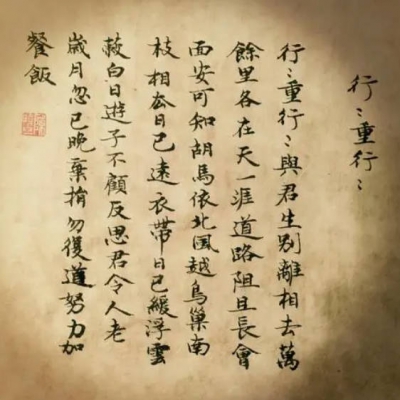 行〻重行〻
行〻重行〻與君生别離相去萬
餘里各在天一涯道路阻且長會
面安可知胡馬依北風越鳥巢南
枝相去日已遠衣帶日已緩浮雲
蔽白日遊子不顧反思君令人老
歲月忽已晚棄捐勿復道努力加
餐飯